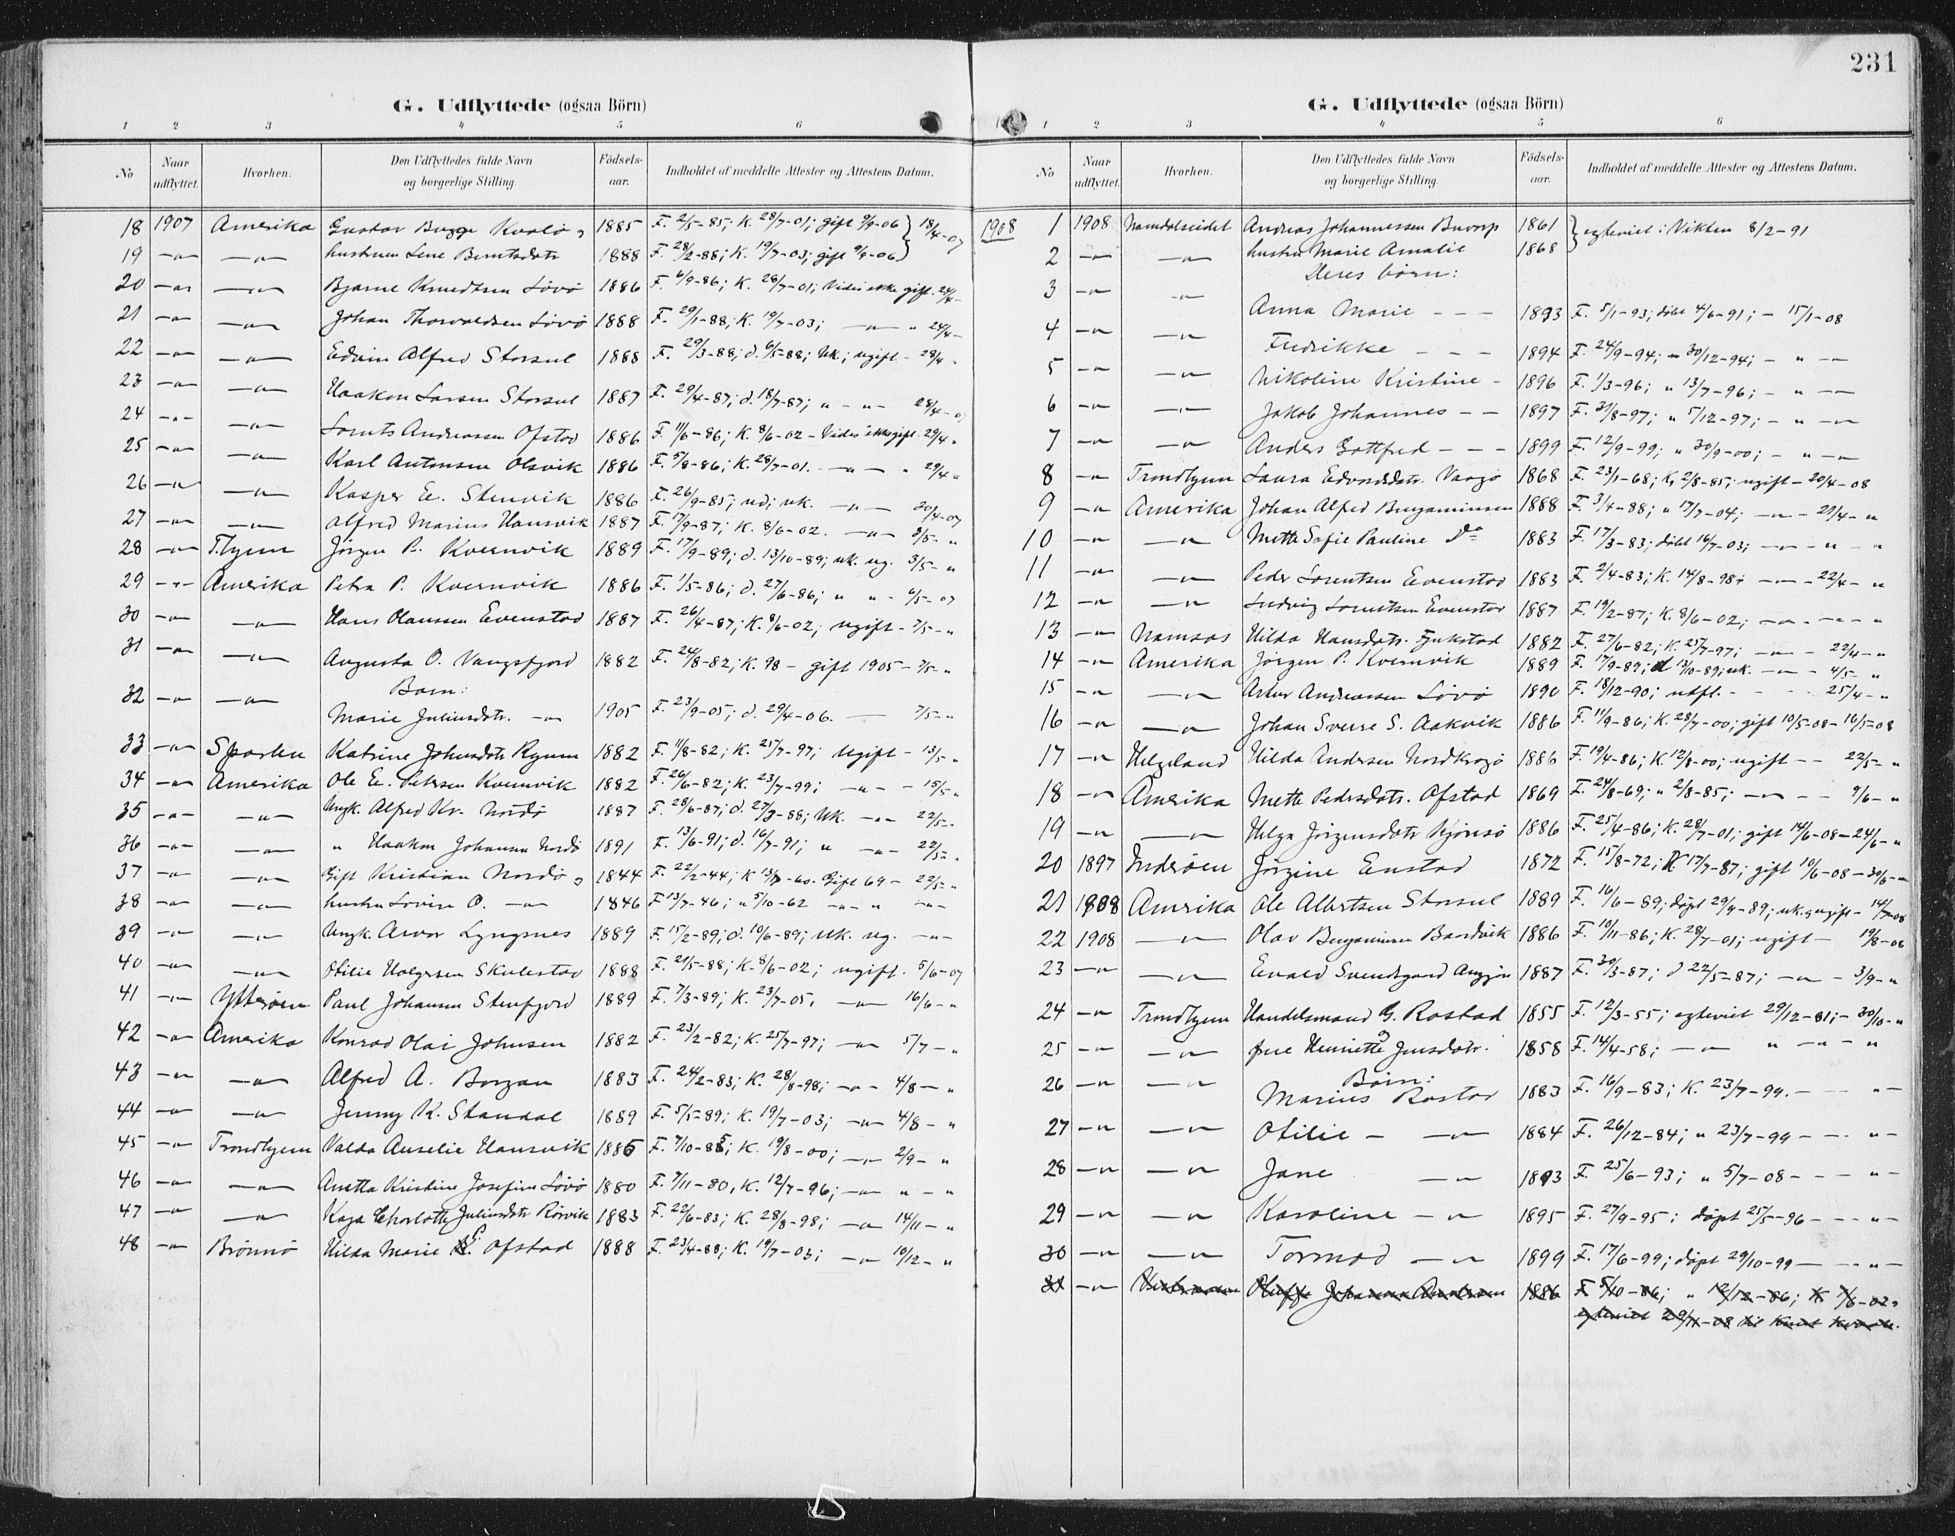 231
G. Udflyttede (ogsaa Börn)
1 2 3 4 5 6
No Naar udflyttet. Hvorhen. Den Udflyttedes fulde Navn og borgerlige Stilling. Födsels-aar. Indholdet af meddelte Attester og Attestens Datum.
18 1907 Amerika Gustav Bugge Kvalö, 1885 F. 2/5-85; K. 28/7-01; gift 9/9-06 } 18/4-07
19 -"- -"- hustruen Lene Berntsdatr 1888 F. 28/2-88; K. 19/7-03; gift 9/9-06
20 -"- -"- Bjarne Knudtsen Lövö 1886 F. 6/9-86; K. 28/7-01; Vides ikke gift. 24/4-
21 -"- -"- Johan Thorvaldsen Lövö 1888 F. 29/1-88; K. 19/7-03; -"- " 24/4-
22 -"- -"- Edvin Alfred Storsul 1888 F. 29/3-88; d. 6/5-88; uk; ugift - 28/4 "
23 -"- -"- Haakon Larsen Storsul 1887 F. 29/4-87; d. 18/7-87; " - "- 28/4-07
24 -"- -"- Lornts Andreassen Ofstad 1886 F. 11/6-86; K. 8/6-02 - Vides ikke gift. 29/4 "
25 -"- -"- Karl Antonsen Olsvik 1886 F. 5/8-86; K. 28/7-01. -"- " 29/4-
26 -"- -"- Kasper E. Stenvik 1886 F. 26/9-85; ud; uk. -"- 20/4-07
27 -"- -"- Alfred Marius Hansvik 1887 F. 17/9-87; K. 8/6-02. -"- 3/5- "
28 -"- Thjem Jörgen P. Kvernvik 1889 F. 17/9-89; d. 13/10-89; uk. ug. 3/5- "
29 -"- Amerika Petra P. Kvernvik 1886 F. 1/5-86; d. 27/6-86; " " - 6/5-07
30 -"- -"- Hans Olausen Evenstad 1887 F. 26/4-87; K. 8/6-02; ugift - 7/5- "
31 -"- -"- Augusta O. Vaagsfjord 1882 F. 24/8-82; K. 98 - gift 1905 - 7/5- "
Barn:
32 -"- -"- Marie Juliusdtr. -"- 1905 F. 23/9-05; d. 29/4-06. - 7/5- "
33 -"- Sparbu Katrine Johnsdatr Ryum 1882 F. 11/8-82; K. 25/7-97; Ugift - 13/5 "
34 -"- Amerika Ole E. Petersen Kvernvik 1882 F. 26/6-82; K. 23/7-99; -"- - 15/5 "
35 -"- -"- Ungk. Alfred Kr. Nordö 1887 F. 28/6-87; d. 27/3-88; Uk. -"- 22/5-
36 -"- -"- " Haakon Johannes Nordö 1891 F. 13/6-91; d. 16/7-91; " -"- 22/5-
37 -"- -"- Gift Kristian Nordö, 1844 F. 22/2-44; K 13/7-60. Gift 69 - 22/5- "
38 -"- -"- hustru Lovise O. -"- 1846 F 13/7-46; " 5/10-62 -"- " -"-
39 -"- -"- Ungk. Arvor Lyngsnes 1889 F. 15/2-89; d. 10/6-89; Uk. ug. -"-
40 -"- -"- Otilie Holgersen Skulestad 1888 F. 2/5-88; K. 8/6-02; ugift. 5/6-07
41 -"- Ytterøen Paul Johansen Stenfjord 1889 F. 7/3-89; K. 23/7-05. -"- 16/6- "
42 -"- Amerika Konrad Olai Johnsen 1882 F. 23/2-82; K. 25/7-97; -"- 5/7- "
43 -"- -"- Alfred A. Borgan 1883 F. 24/2-83; K. 28/8-98; -"- 4/8- "
44 -"- -"- Jenny K. Standal 1889 F. 5/5-89; K. 19/7-03; -"- 4/8- "
45 -"- Trondhjem Valda Aurelie Hansvik 1885 F. 7/10-85; K. 19/8-00; -"- 2/9- "
46 -"- -"- Anetta Kristine Josefine Lövö 1880 F. 7/11-80, K. 12/7-96; -"- " - "
47 -"- -"- Kaja Charlotte Juliusdatr Rörvik 1883 F. 22/6-83; K. 28/8-98; -"- 14/11- "
48 -"- Brönnö Hilda Marie E. Ofstad 1888 F. 23/4-88; K. 19/7-03; -"- 10/12- "
G. Udflyttede (ogsaa Börn)
1 2 3 4 5 6
No Naar udflyttet. Hvorhen. Den Udflyttedes fulde Navn og borgerlige Stilling. Födsels-aar. Indholdet af meddelte Attester og Attestens Datum.
1908 1 1908 Namdalseidet Andreas Johannessen Buvarp 1861 } egteviet i Vikten 8/2-91
2 -"- -"- hustru Marie Amalie 1868
Deres börn:
3 -"- -"- Anna Marie - - - 1893 F. 5/1-93; döbt 4/6-91; - 15/1-08
4 -"- -"- Fredrikke - - - 1894 F. 24/9-94; " 30/12-94; - " -
5 -"- -"- Nikoline Kristine - 1896 F. 1/3-96; " 13/7-96; - " -
6 -"- -"- Jakob Johannes - - 1897 F. 31/8-97; " 5/12-97; - " -"-
7 -"- -"- Anders Gottfred - - - 1899 F. 12/9-99; " 30/9-00; - " -"-
8 -"- Trondhjem Laura Edvardsdtr. Vaagö 1868 F. 23/1-68; K. 2/8-85; ugift - 20/4-08
9 -"- Amerika Johan Alfred Benjaminsen 1888 F. 3/4-88; " 17/7-04; -"- - 21/4- "
10 -"- -"- Mette Sofie Pauline Do 1883 F. 17/3-83; döbt 16/7-03; -"- - " - "
11 -"- -"- Peder Lorentsen Evenstad 1883 F. 2/4-83; K. 14/8-98; -"- - 22/4- "
12 -"- -"- Ludvig Lorentsen Evenstad 1887 F. 19/2-87; K. 8/6-02; -"- - " - "
13 -"- Namsos Hilda Hansdatr. Fjukstad 1882 F. 27/6-82; K. 25/7-97; -"- - 22/4- "
14 -"- Amerika Jörgen P. Kvernvik 1889 F. 17/9-89; d 13/10-89; uk. - - 4/5- "
15 -"- -"- Artur Andreassen Lövö 1890 F. 18/12-90; udfl. - - - - 25/4- "
16 -"- -"- Johan Sverre S. Aakvik 1886 F. 11/9-86; K. 28/7-00; gift 10/5-08 - 16/5-08
17 -"- Helgeland Hilda Andersen Nordkrogö 1886 F. 19/4-86; K. 12/8-00; ugift - - 22/5- "
18 -"- Amerika Mette Pedersdatr. Ofstad 1869 F. 24/8-69; " 2/8-85; -"- - - 9/6- "
19 -"- -"- Helga Jörgensdatr Kjönsö 1886 F. 25/4-86; K. 28/7-01; gift 14/6-08 - 24/6- "
20 1897 Inderöen Jörgine Enstad 1872 F. 15/8-72; K 17/7-87; gift 10/6-08 - 30/6- "
21 1908 Amerika Ole Albertsen Storsul 1889 F. 16/6-89; döpt 29/9-89; uk. ugift - 14/7-08
22 1908 -"- Olav Benjaminsen Bardvik 1886 F. 10/11-86; K. 28/7-01; ugift - 19/8-06
23 -"- -"- Evald Svendsgaard 1887 F. 30/3-87; d 22/5-87; -"- - 3/9- "
24 -"- Trondhjem Handelsmand G. Rostad 1855 F. 12/3-55; egteviet 29/12-81; - 30/10- "
25 -"- -"- frue Henriette Jensdatr. 1858 F. 14/4-58; -"- " -"- "
Börn:
26 -"- -"- Marius Rostad 1883 F. 16/9-83; K. 23/7-99. - - - "-
27 -"- -"- Otilie - -"- 1884 F. 26/12-84; " 23/7-99 - - - "-
28 -"- -"- Jane -"- 1893 F. 25/6-93; " 5/7-08 - - - "-
29 -"- -"- Karoline - -"- 1895 F. 27/9-95; döpt 25/5-96 - - - "-
30 -"- -"- Tormod -"- 1899 F. 17/6-99; döpt 29/10-99 - - - "-
31 -"- Oluffe Johanna 1886 F 5/10-86; " 12/12-86; K 8/6-02,
egteviet 29/11-08 til Knut
5